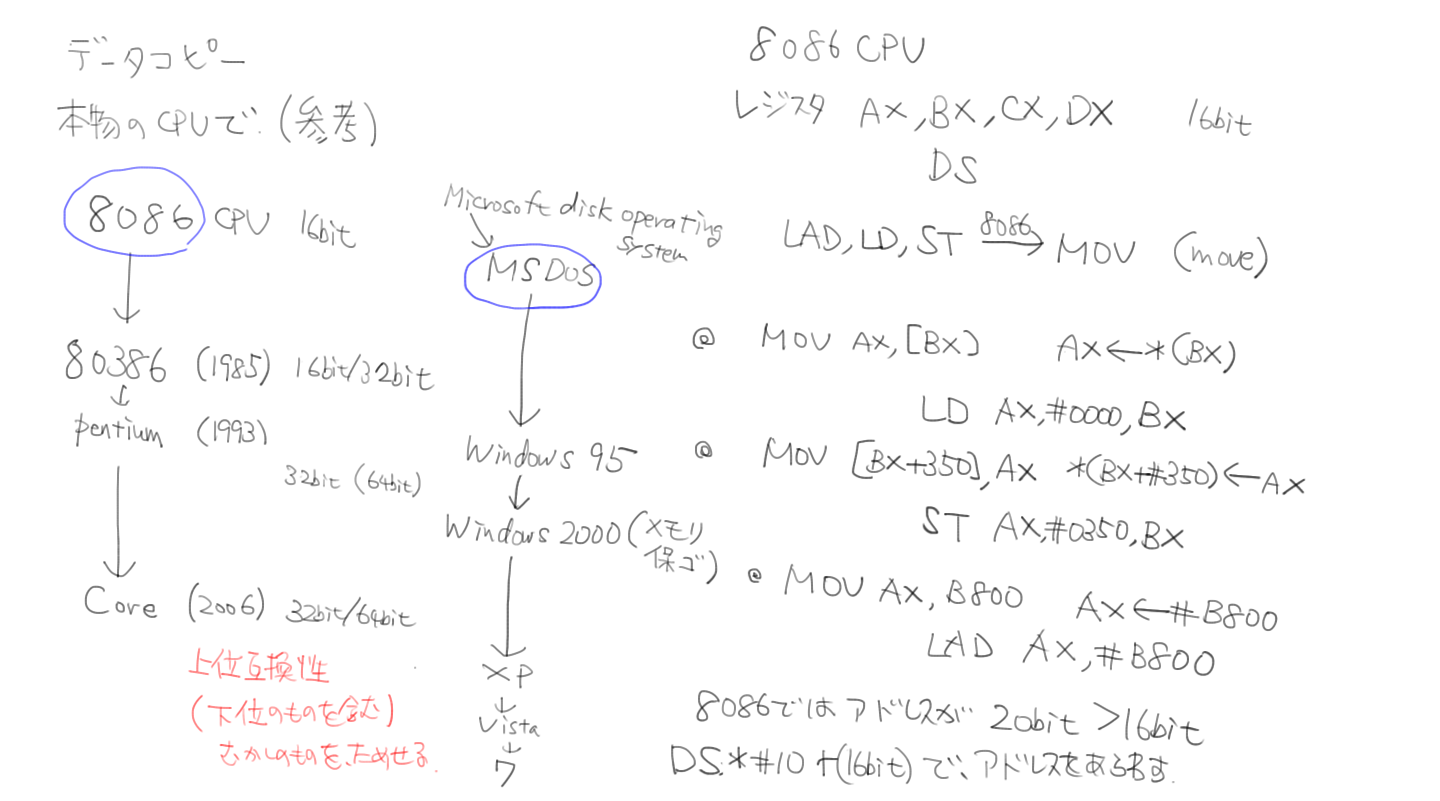 データコピー
本物のCPUで.(参考)
8086 CPU 16bit
80386 (1985) 16bit/32bit
↓
pentium (1993)
32bit (64bit)
↓
Core (2006) 32bit/64bit
上位互換性
(下位のものを含む)
むかしのものを、ためせる.
Microsoft disk operating
system
MSDOS
↓
Windows 95
↓
Windows 2000 (メモリ
保ゴ)
↓
XP
↓
Vista
↓
7
8086 CPU
レジスタ AX,BX,CX,DX 16bit
DS
LAD,LD,ST 8086→ MOV (move)
@ MOV AX,[BX] AX←*(BX)
LD AX,#0000,BX
@ MOV [BX+350],AX *(BX+#350)←AX
ST AX,#0350,BX
@ MOV AX,B800 AX←#B800
LAD AX,#B800
8086では アドレスが 20bit >16bit
DS.*#10+(16bit)で、アドレスをあらわす.